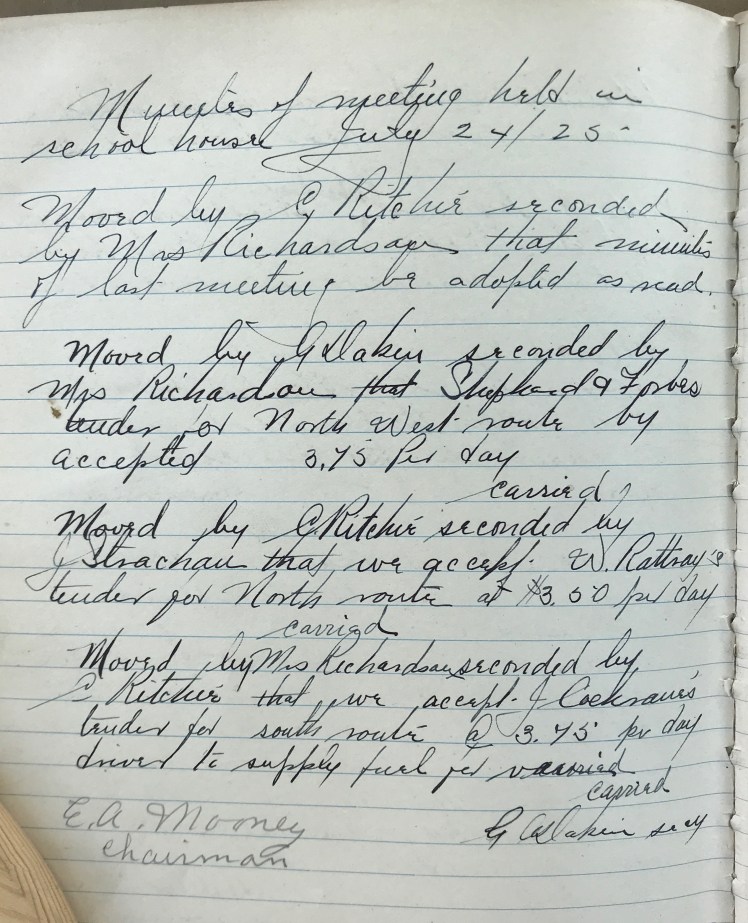 Minutes of meeting held in
school house July 24/25
Moved by C Ritchie seconded
by Mrs Richardson that minutes
of last meeting be adopted as read.
Moved by G Dakin seconded by
Mrs Richardson that Shephard & Forbes
tender for North West route by
accepted 3.75 Per day
carried
Moved by C Ritchie seconded by
J Strachan that we accept W. Rattray's
tender for North route at $3.50 per day
carried
Moved by Mrs Richardson seconded by
C Ritchie that we accept J Cochrane's
tender for south route @ 3.75 per day
driver to supply fuel for
carried
E.A. Mooney
chairman
G Dakin secy